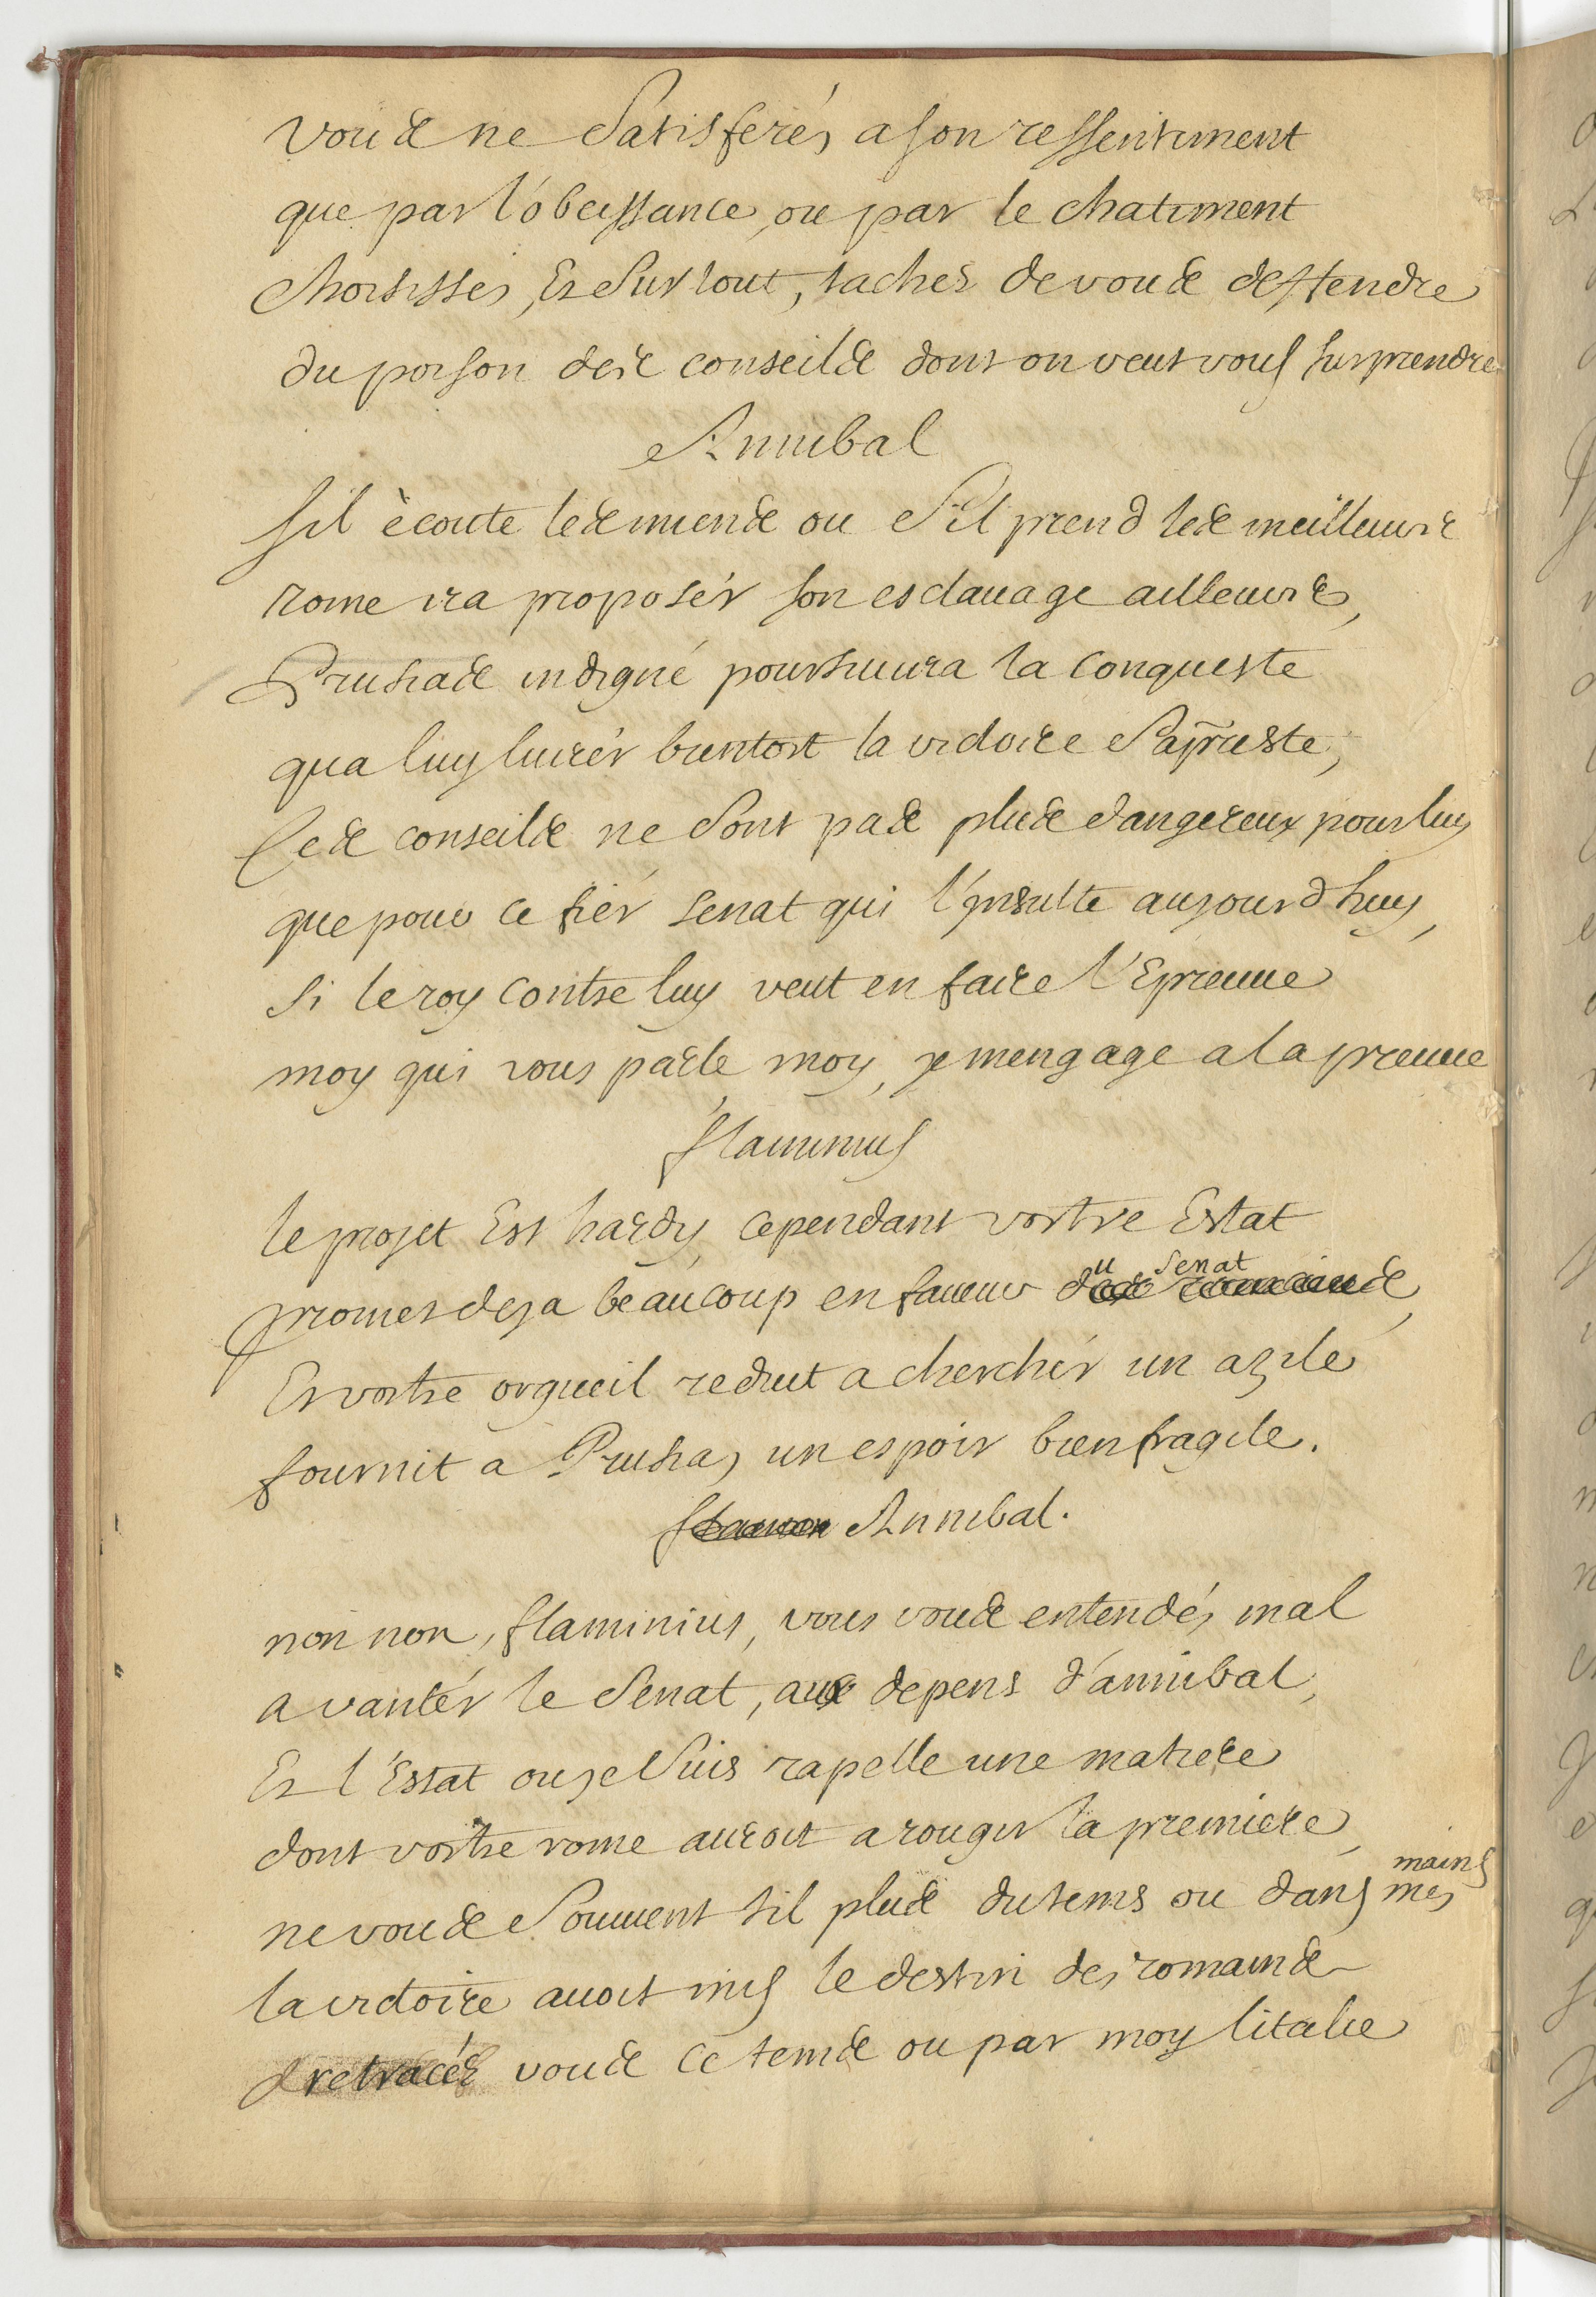 vous ne Satisferés a son ressentiment
que par l'obeissance, ou par le chatiment
choisisses, Et Sur tout, taches de vous deffendre
du poison des conseils dont on veut vous surprendre
Annibal
sil écoute les miens ou S'il prend les meilleurs
rome ira proposér son esclauage ailleurs,
Prusias indigné poursuiura la conqueste
qua luy liurér bientost la victoire S'apreste,
Ces conseils ne Sont pas plus dangereux pour luy
que pour ce fiér senat qui l'insulte aujourdhuy,
si le roy contre luy veut en faire l'Epreuue
moy qui vous parle moy, je mengage a la preuue
flaminius
le projet Est hardy, cependant vostre Estat
promet deja beaucoup en faueur du Senat,
Et vostre orgueil reduit a cherchér un azile
fournit a Prusias un espoir bien fragile.
flamin Annibal.
non non, flaminius, vous vous entendés mal
a vantér le Senat, aux depens d'annibal,
Et l'Estat ou je Suis rapelle une matiere
dont vostre rome auroit a rougir la premiere,
ne vous Souuient til plus du tems ou dans mes mains
la victoire auoit mis le destin des romains
retracés vous ce tems ou par moy litalie